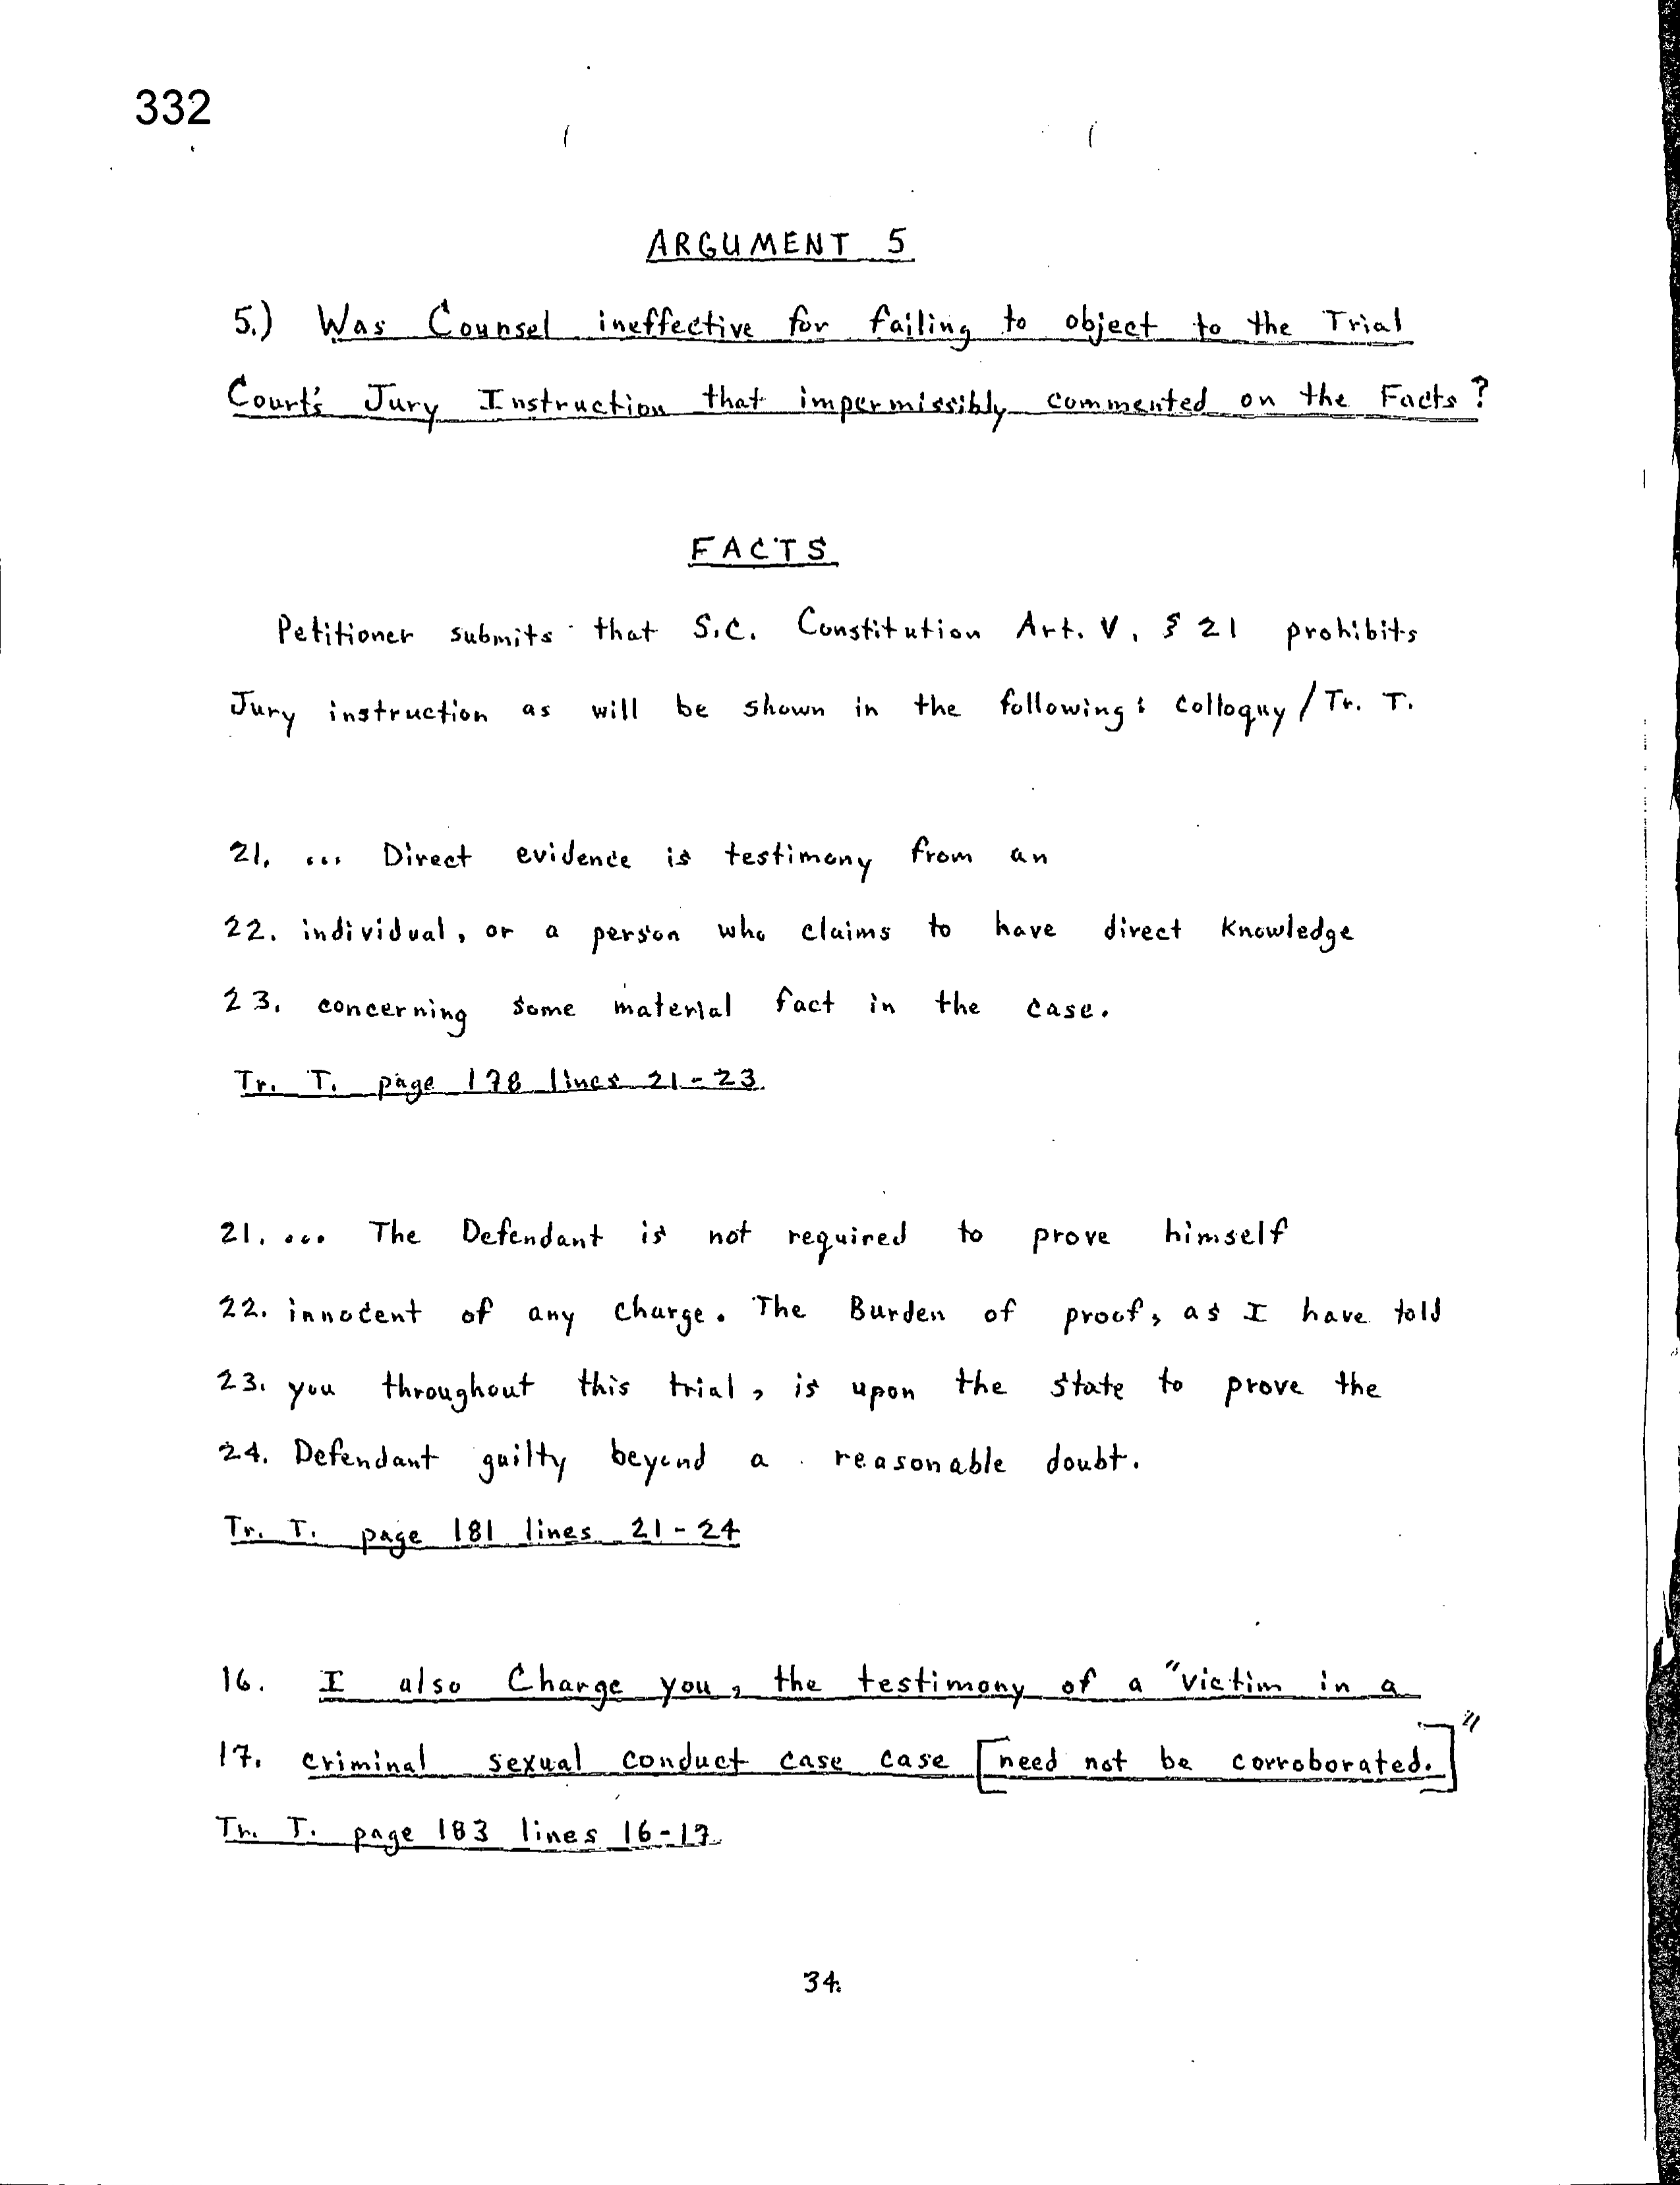 332
ARGUMENT 5
5.) Was Counsel ineffective for failing to object to the Trial
Court's Jury Instruction that impermissibly commented on the Facts?
FACTS
Petitioner submits that S.C. Constitution Art. V, § 21 prohibits
Jury instruction as will be shown in the following: Colloquy / Tr. T.
21. ... Direct evidence is testimony from an
22. individual, or a person who claims to have direct knowledge
23. concerning some material fact in the case.
Tr. T. page 178 lines 21-23
21. ... The Defendant is not required to prove himself
22. innocent of any charge. The Burden of proof, as I have told
23. you throughout this trial, is upon the state to prove the
24. Defendant guilty beyond a reasonable doubt.
Tr. T. page 181 lines 21-24
16. I also Charge you, the testimony of a "victim in a
17. criminal sexual conduct case case [need not be corroborated.]"
Tr. T. page 183 lines 16-17
34.